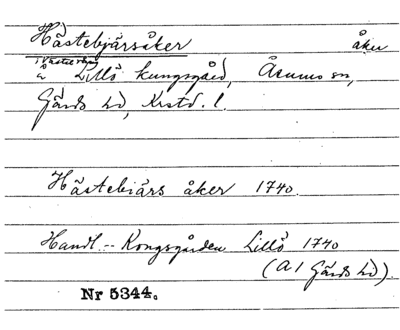 Hästebjärsåker åker
i Västervång
å Lillö kungsgård, Åsums sn,
Gärds hd, Krstd. l.
Hästebiärs åker 1740.
Handl. - Kongsgården Lillö 1740
(A 1 Gärds hd).
Nr 5344.